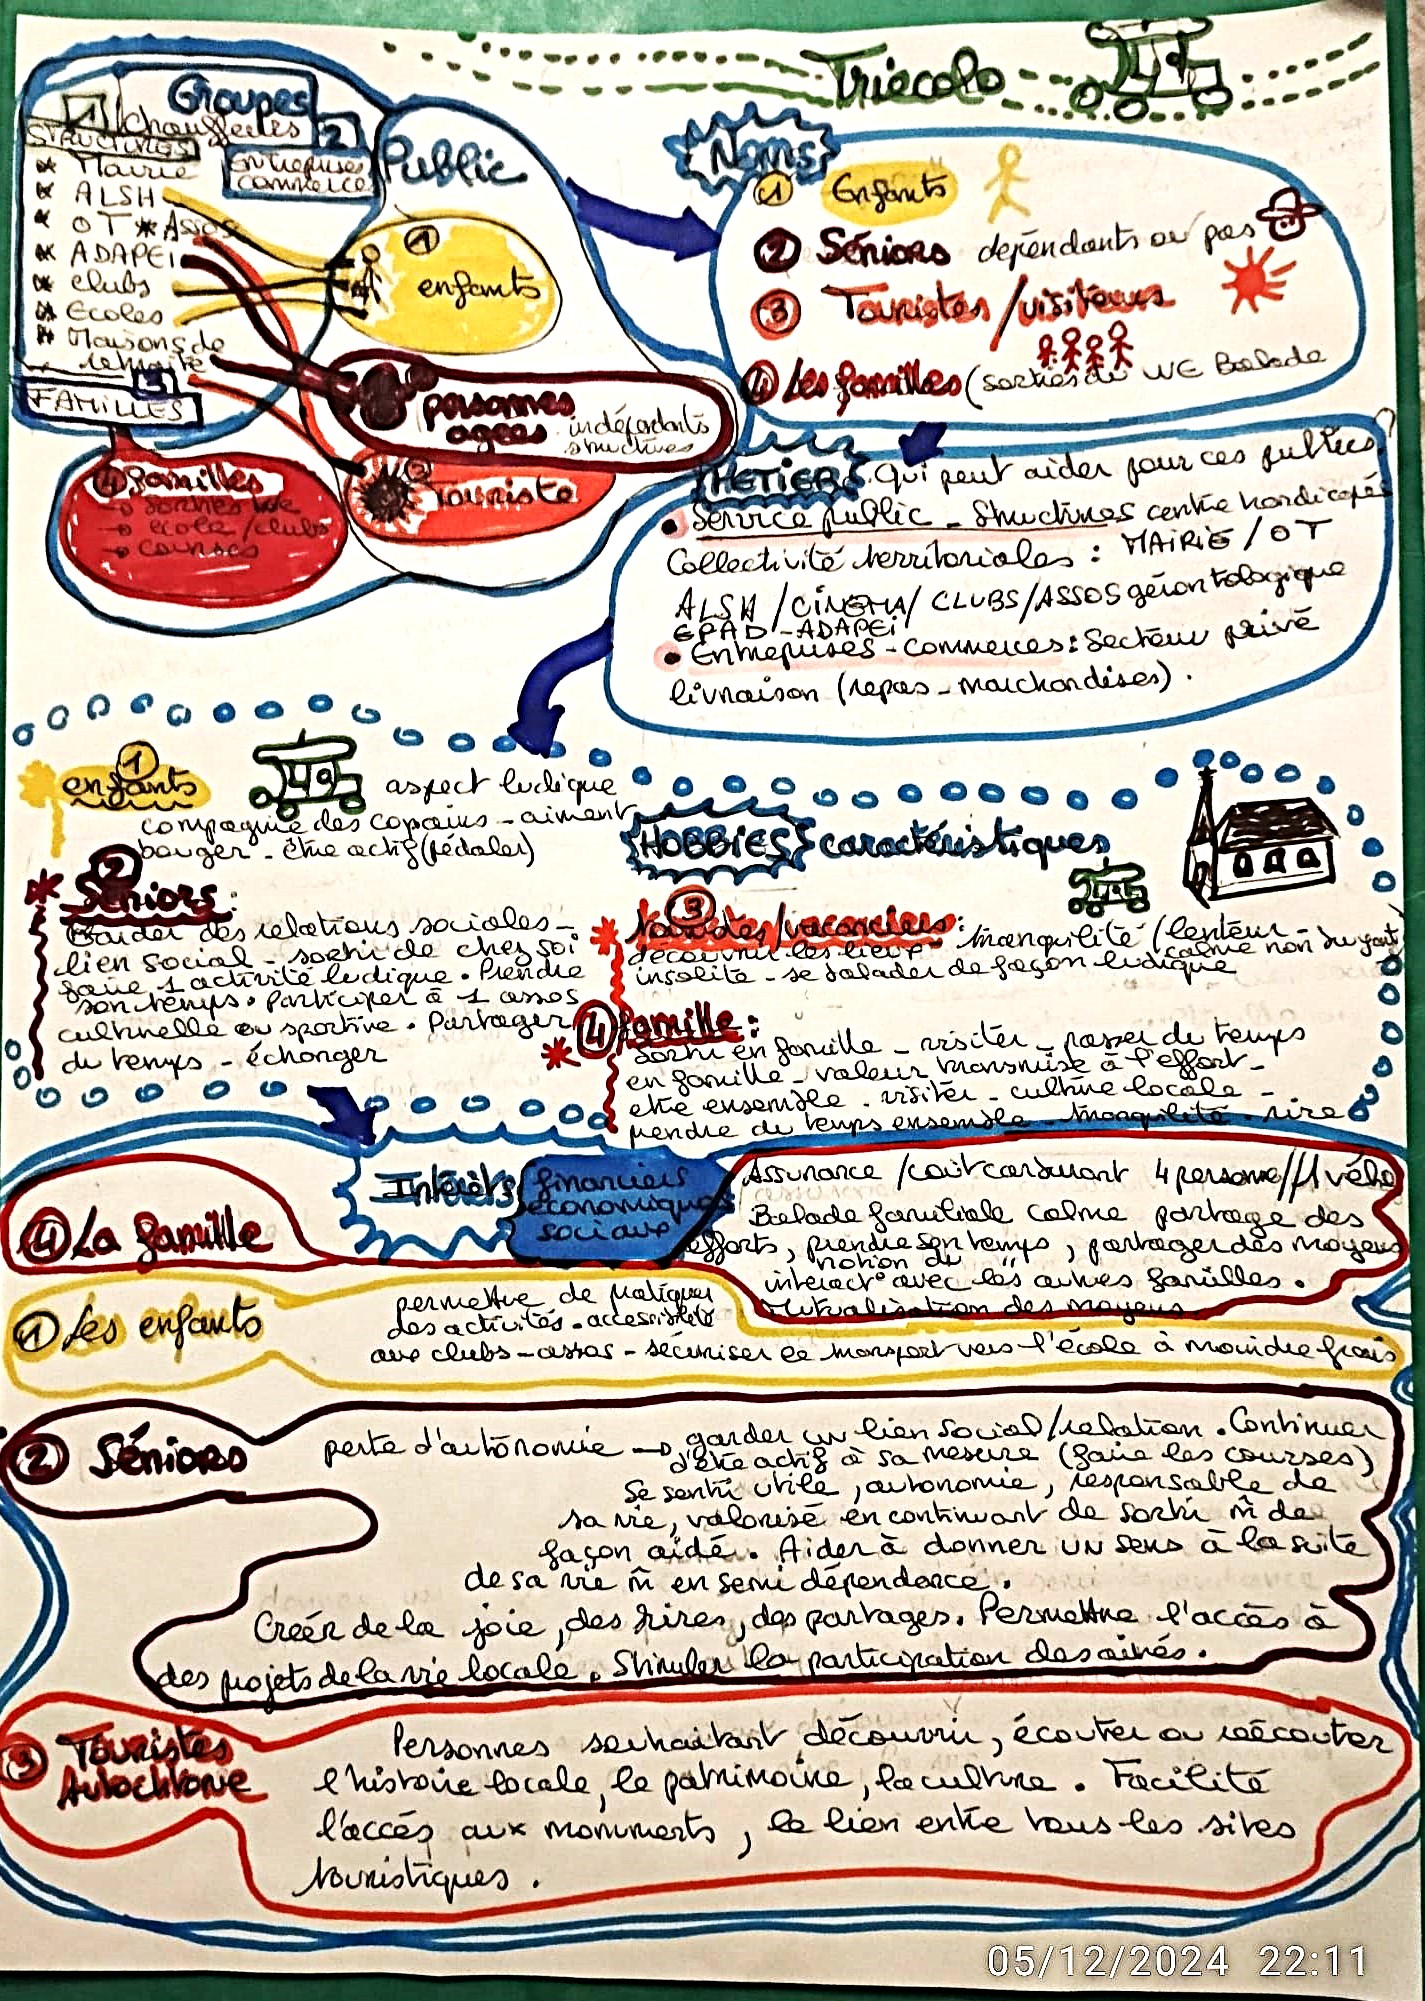 Triecolo
Groupes
1 Chauffeurs
STRUCTURES
2
Entreprises
commerce
* Mairie
* ALSH
* OT * Assos
* ADAPEI
* clubs
* Ecoles
* Maisons de
retraite
3
FAMILLES
Public
1
enfants
personnes
agées indépendants
structures
3
Touriste
4 familles
→ sorties WE
→ école/clubs
→ courses
Noms
1 Enfants
2 Séniors dépendants ou pas
3 Touristes/visiteurs
4 Les familles (sorties du WE Balade
METIERS. Qui peut aider pour ces publics?
• Service public - Structures centre handicapés
Collectivité territoriales : MAIRIE / OT
ALSH / CINEMA / CLUBS / ASSOS gérontologique
EPAD - ADAPEI
• Entreprises - Commerces : Secteur privé
livraison (repas - marchandises).
1
enfants aspect ludique
compagnie des copains - aiment
bouger - être actif (pédaler)
HOBBIES caractéristiques
2
Séniors :
Garder des relations sociales -
lien social - sortir de chez soi
faire 1 activité ludique. Prendre
son temps. Participer à 1 assos
culturelle ou sportive. Partager
du temps - échanger
3
Touristes/vacanciers : tranquilité (lenteur -
calme non bruyant
découvrir les lieux
insolite - se balader de façon ludique
4 famille :
Sortir en famille - visiter - passer du temps
en famille - valeur transmise à l'effort -
etre ensemble - visiter - culture locale -
prendre du temps ensemble - tranquilité - rire
Intérêts financiers
économiques
sociaux
4 La famille
Assurance / coût carburant 4 personnes // 1 vélo
Balade familiale calme partage des
efforts, prendre son temps, partager des moyens
notion du "
interact° avec les autres familles.
Mutualisation des moyens.
1 Les enfants
permettre de pratiquer
des activités - accessibilité
aux clubs - assos - sécuriser le transport vers l'école à moindre frais
2 Séniors
perte d'autonomie → garder un lien social/relation. Continuer
d'être actif à sa mesure (faire les courses)
Se sentir utile, autonomie, responsable de
sa vie, valorisé en continuant de sortir m̂ de
façon aidé. Aider à donner un sens à la suite
de sa vie m̂ en semi dépendance.
Créer de la joie, des rires, des partages. Permettre l'accès à
des projets de la vie locale. Stimuler la participation des ainés.
3 Touristes
Autochtone
Personnes souhaitant découvrir, écouter ou réécouter
l'histoire locale, le patrimoine, la culture. Facilité
l'accés aux monuments, le lien entre tous les sites
touristiques.
05/12/2024 22:11